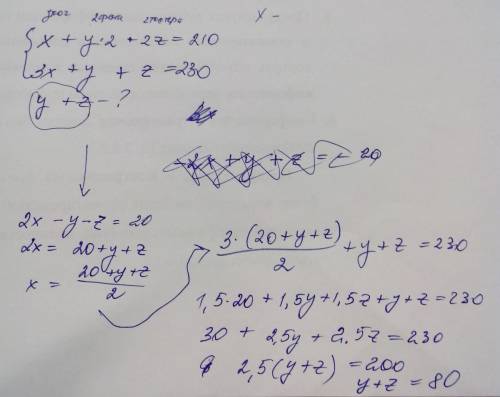 x -
x + y·2 + 2z = 210
3x + y + z = 230
y + z - ?
2x - y - z = 20
2x = 20 + y + z
x = (20 + y + z)/2
3·(20 + y + z)/2 + y + z = 230
1,5·20 + 1,5y + 1,5z + y + z = 230
30 + 2,5y + 2,5z = 230
2,5(y + z) = 200
y + z = 80